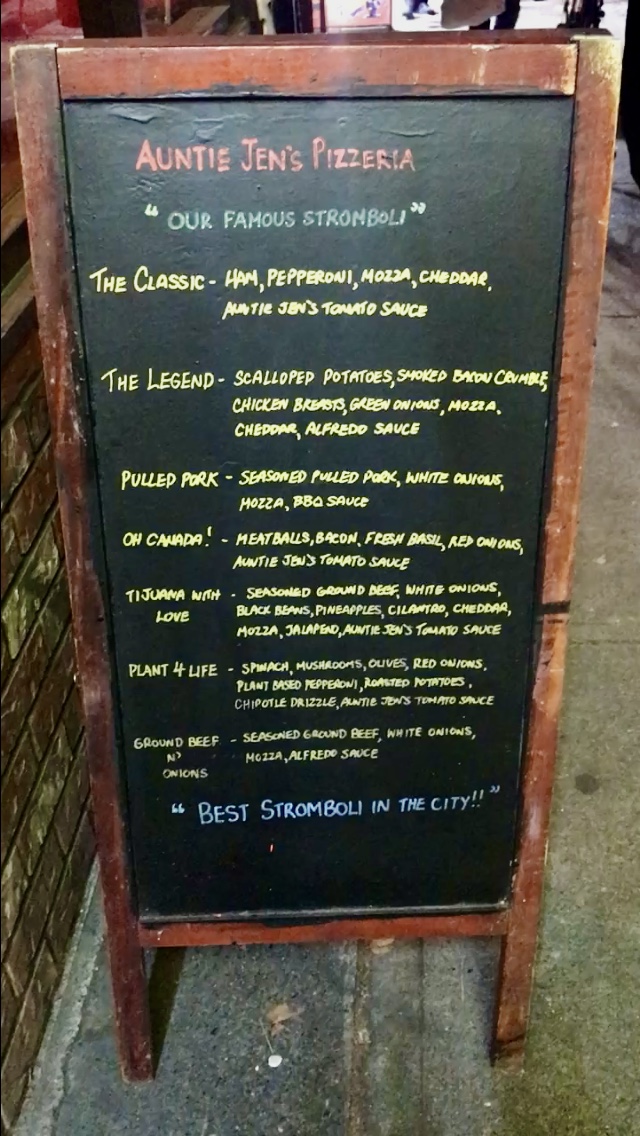 AUNTIE JEN'S PIZZERIA
"OUR FAMOUS STROMBOLI"
THE CLASSIC - HAM, PEPPERONI, MOZZA, CHEDDAR,
AUNTIE JEN'S TOMATO SAUCE
THE LEGEND - SCALLOPED POTATOES, SMOKED BACON CRUMBLE,
CHICKEN BREASTS, GREEN ONIONS, MOZZA,
CHEDDAR, ALFREDO SAUCE
PULLED PORK - SEASONED PULLED PORK, WHITE ONIONS,
MOZZA, BBQ SAUCE
OH CANADA! - MEATBALLS, BACON, FRESH BASIL, RED ONIONS,
AUNTIE JEN'S TOMATO SAUCE
TIJUANA WITH - SEASONED GROUND BEEF, WHITE ONIONS,
LOVE BLACK BEANS, PINEAPPLES, CILANTRO, CHEDDAR,
MOZZA, JALAPENO, AUNTIE JEN'S TOMATO SAUCE
PLANT 4 LIFE - SPINACH, MUSHROOMS, OLIVES, RED ONIONS,
PLANT BASED PEPPERONI, ROASTED POTATOES,
CHIPOTLE DRIZZLE, AUNTIE JEN'S TOMATO SAUCE
GROUND BEEF - SEASONED GROUND BEEF, WHITE ONIONS,
N' MOZZA, ALFREDO SAUCE
ONIONS
"BEST STROMBOLI IN THE CITY!!"